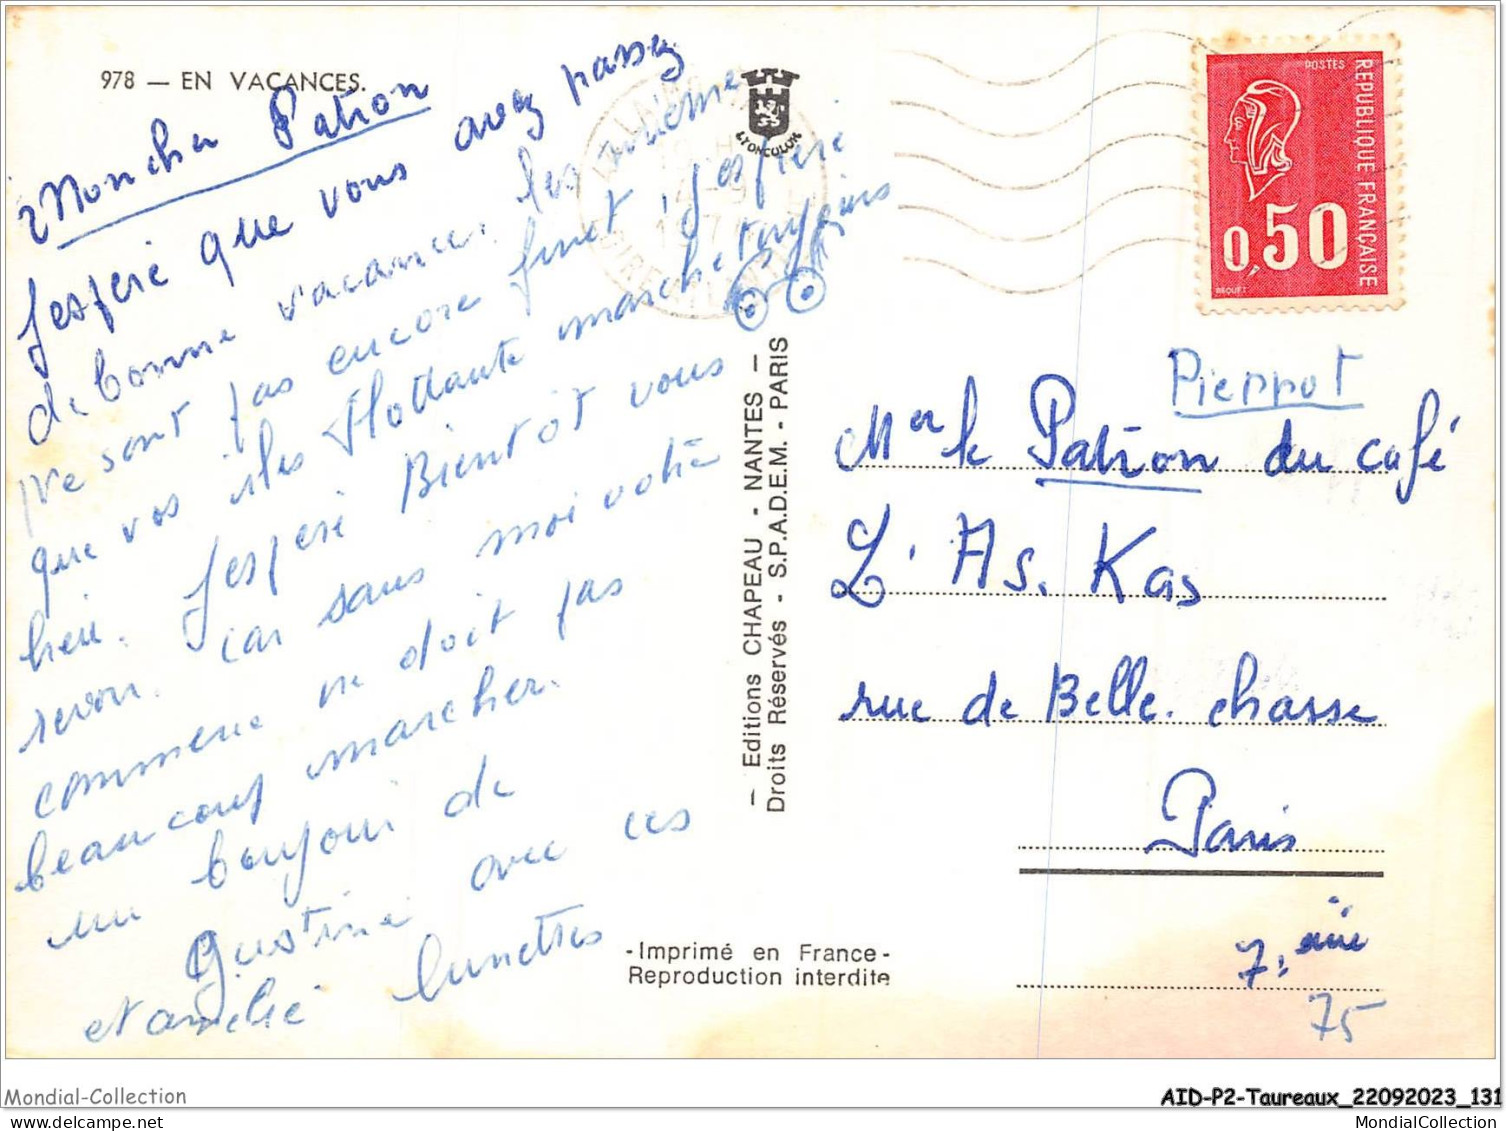 978 — EN VACANCES.
Moncher Patron
Jesperè que vous avez passez
de bonne vacances. les
ne sont pas encore finit j'esperè
que vos îles flottante marche toujours
hein. Jesperè Bientôt vous
revoir. car sans moi votre
commerce ne doit pas
beaucoup marcher.
un bonjour de
Gustine avec ces
et amelie lunettes
LYONCULUM
— Editions CHAPEAU - NANTES —
Droits Réservés - S.P.A.D.E.M. - PARIS
-Imprimé en France-
Reproduction interdite
POSTES
REPUBLIQUE FRANÇAISE
0,50
BEQUET
Pierrot
Mer le Patron du café
L'As. Kas
rue de Belle. chasse
Paris
7.
75
Mondial-Collection
AID-P2-Taureaux_22092023_131
MondialCollection